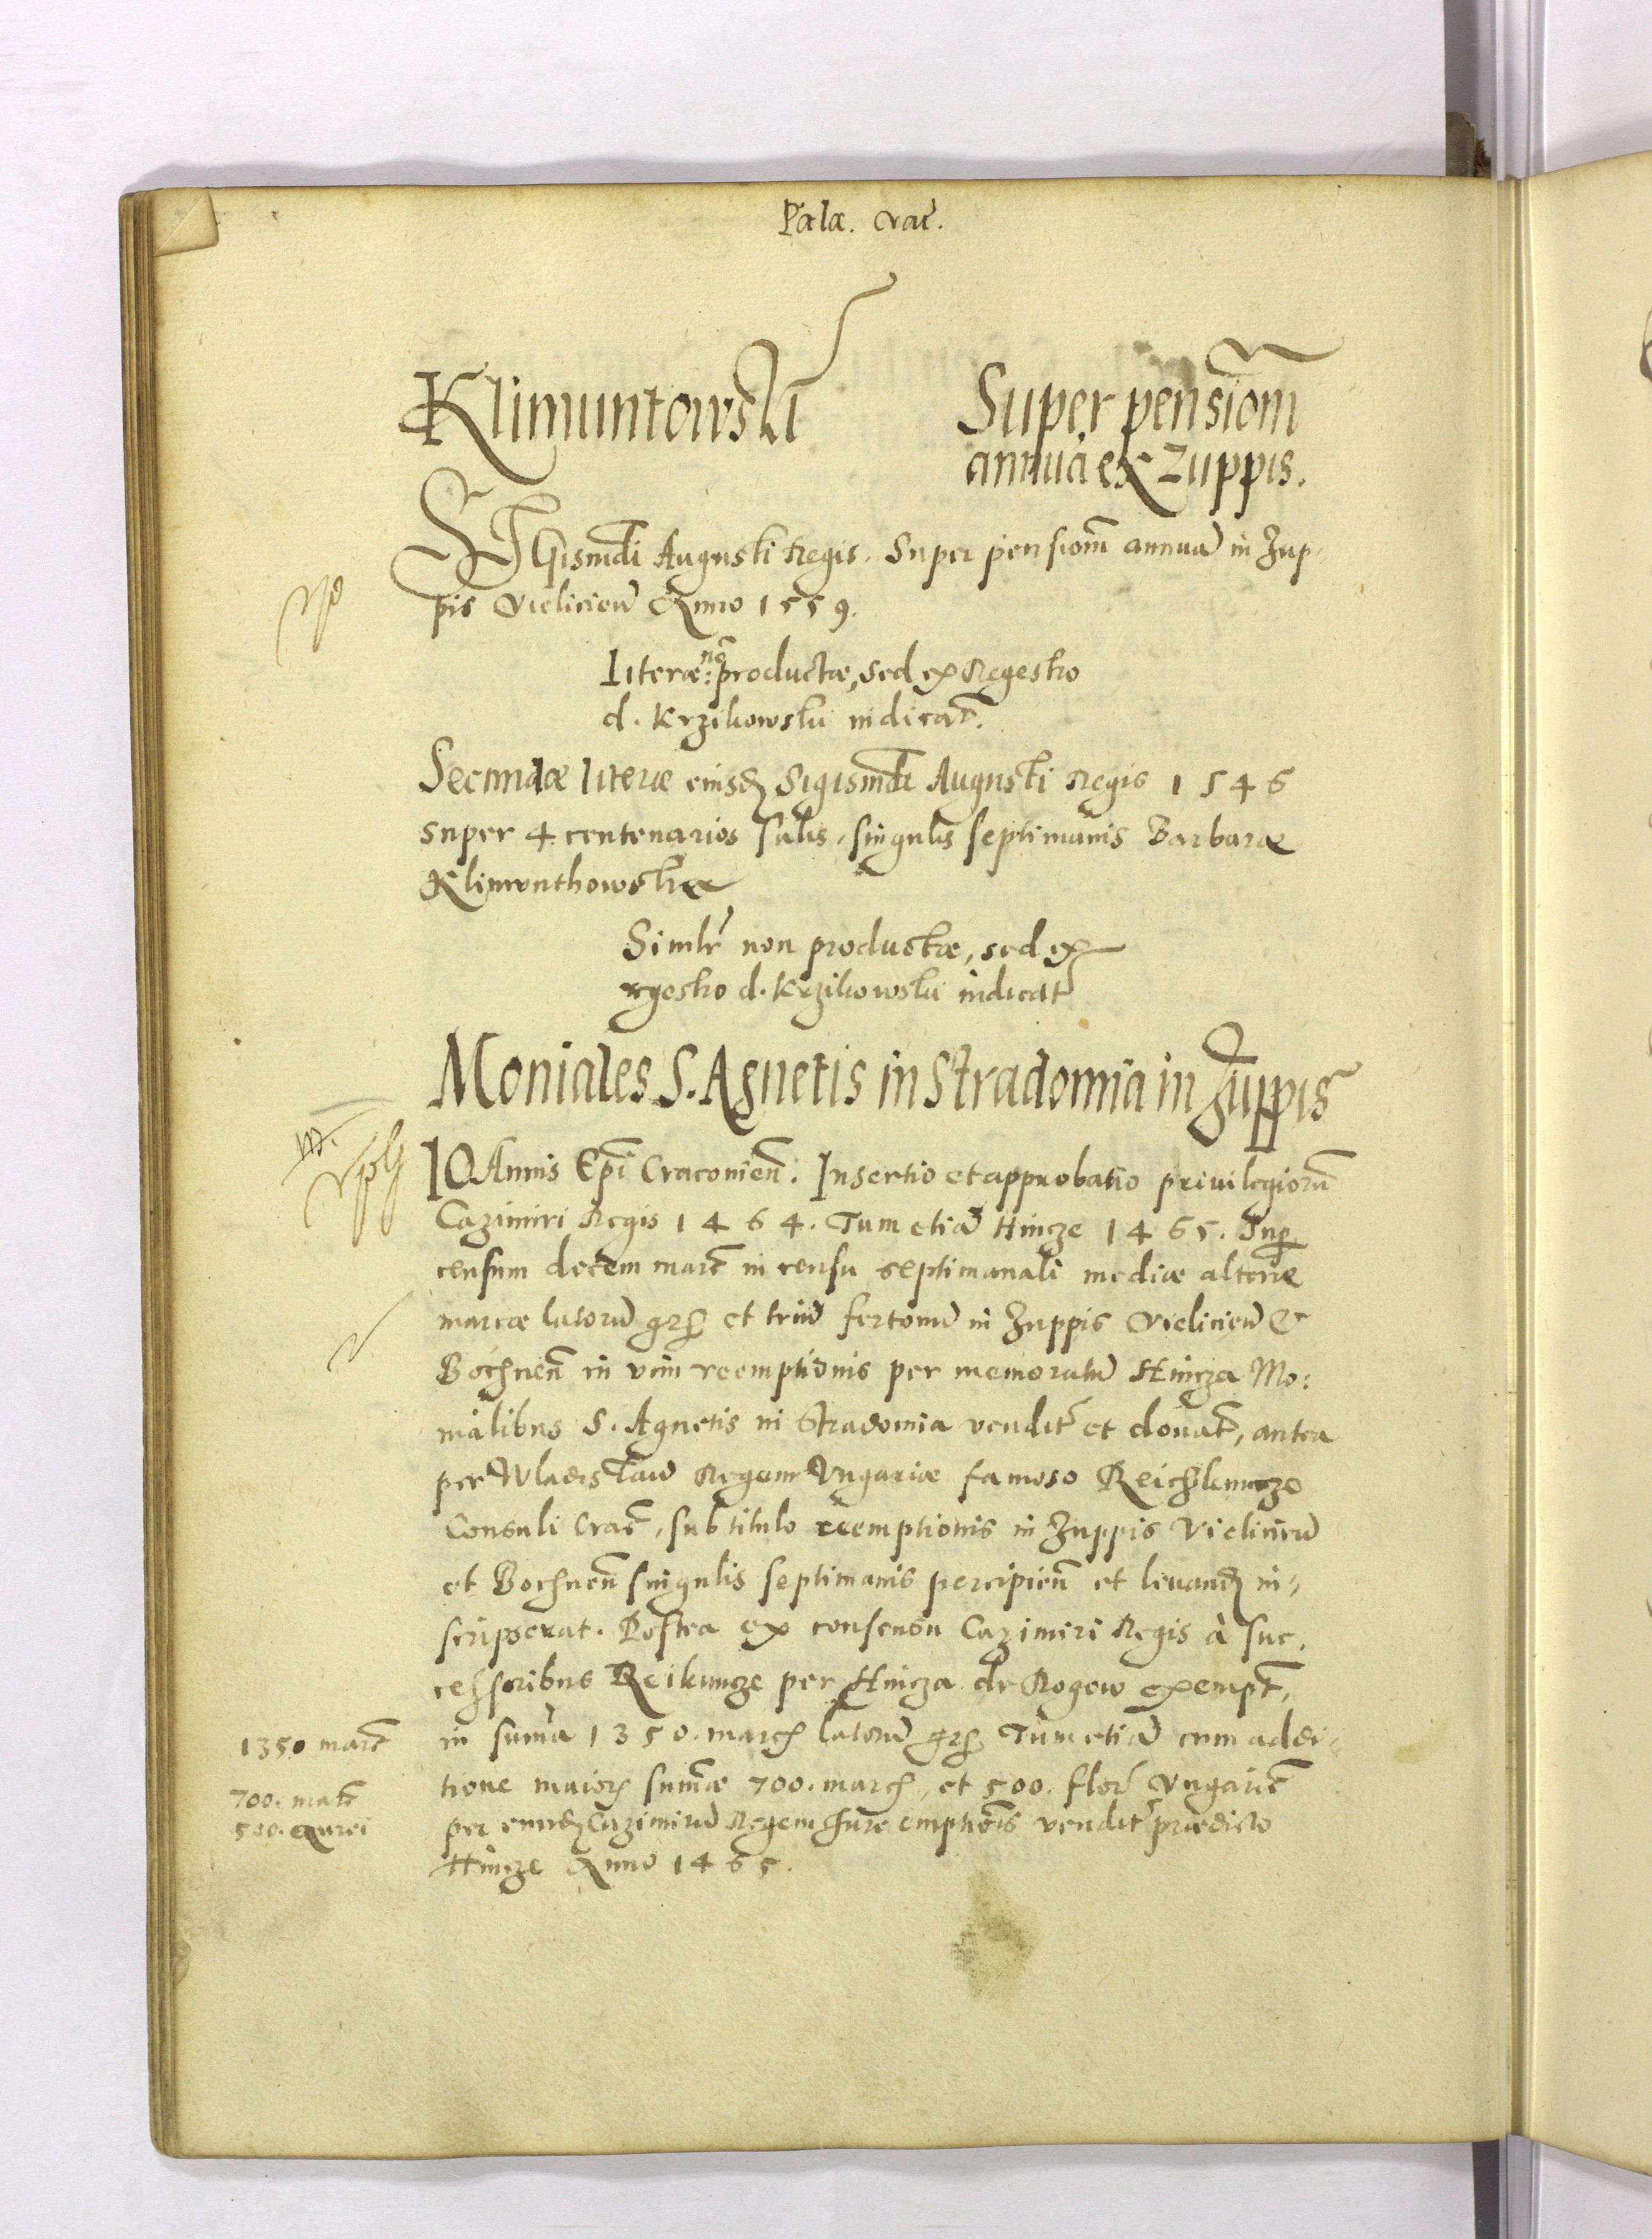 Pala. crac̃.
Klimuntowski
Super pensiom̃
annuã ex Zuppis.
SIGismdi Augusti Regis. Super pensiom̃ annuã in Zup-
pis Vielicieñ Anno 1559.
Literæ nõ productæ, sed ex Regestro
d. Krzikowski indicat̃.
Secundæ literæ eiusd. Sigismdi Augusti Regis 1546
super 4 centenarios salis, singulis septimanis Barbaræ
Klimonthowskæ
Similr̃ non productæ, sed ex
rgestro d. Krzikowski indicat̃
Moniales S. Agnetis in Stradomia in Zuppis
IOAnnis Epĩ Cracovieñ. Insertio et approbatio privilegiorũ
Cazimiri Regis 1464. Tum etiã Hincze 1465. Sup
censum decem marc̃ in censu septimanali mediæ alteræ
marcæ latorũ gr̃ et triũ fertonũ in Zuppis Vielicieñ &
Bochneñ in vim reemptionis per memoratũ Hincza Mo:
nialibus S. Agnetis in Stradomia vendit̃ et donat̃, antea
per Wladislaũ Regem Ungariæ famoso Reichlemcze
Consuli Crac̃, sub titulo reemptionis in Zuppis Vielicieñ
et Bochneñ singulis septimanis percipieñ et levand. in-
scripserat. Postea ex consensu Cazimiri Regis à suc-
cessoribus Reikuncze per Hincza de Rogow exempt̃,
in suma 1350. march latorũ gr̃ Tum etiã cum addi-
tione maior. summæ 700. march, et 500. flor̃ Vngaric̃
per eund. Cazimirũ Regem iure emptiois vendit̃ prædicto
Hincze Anno 1465.
1350 marc̃
700. marc̃
500. aurei